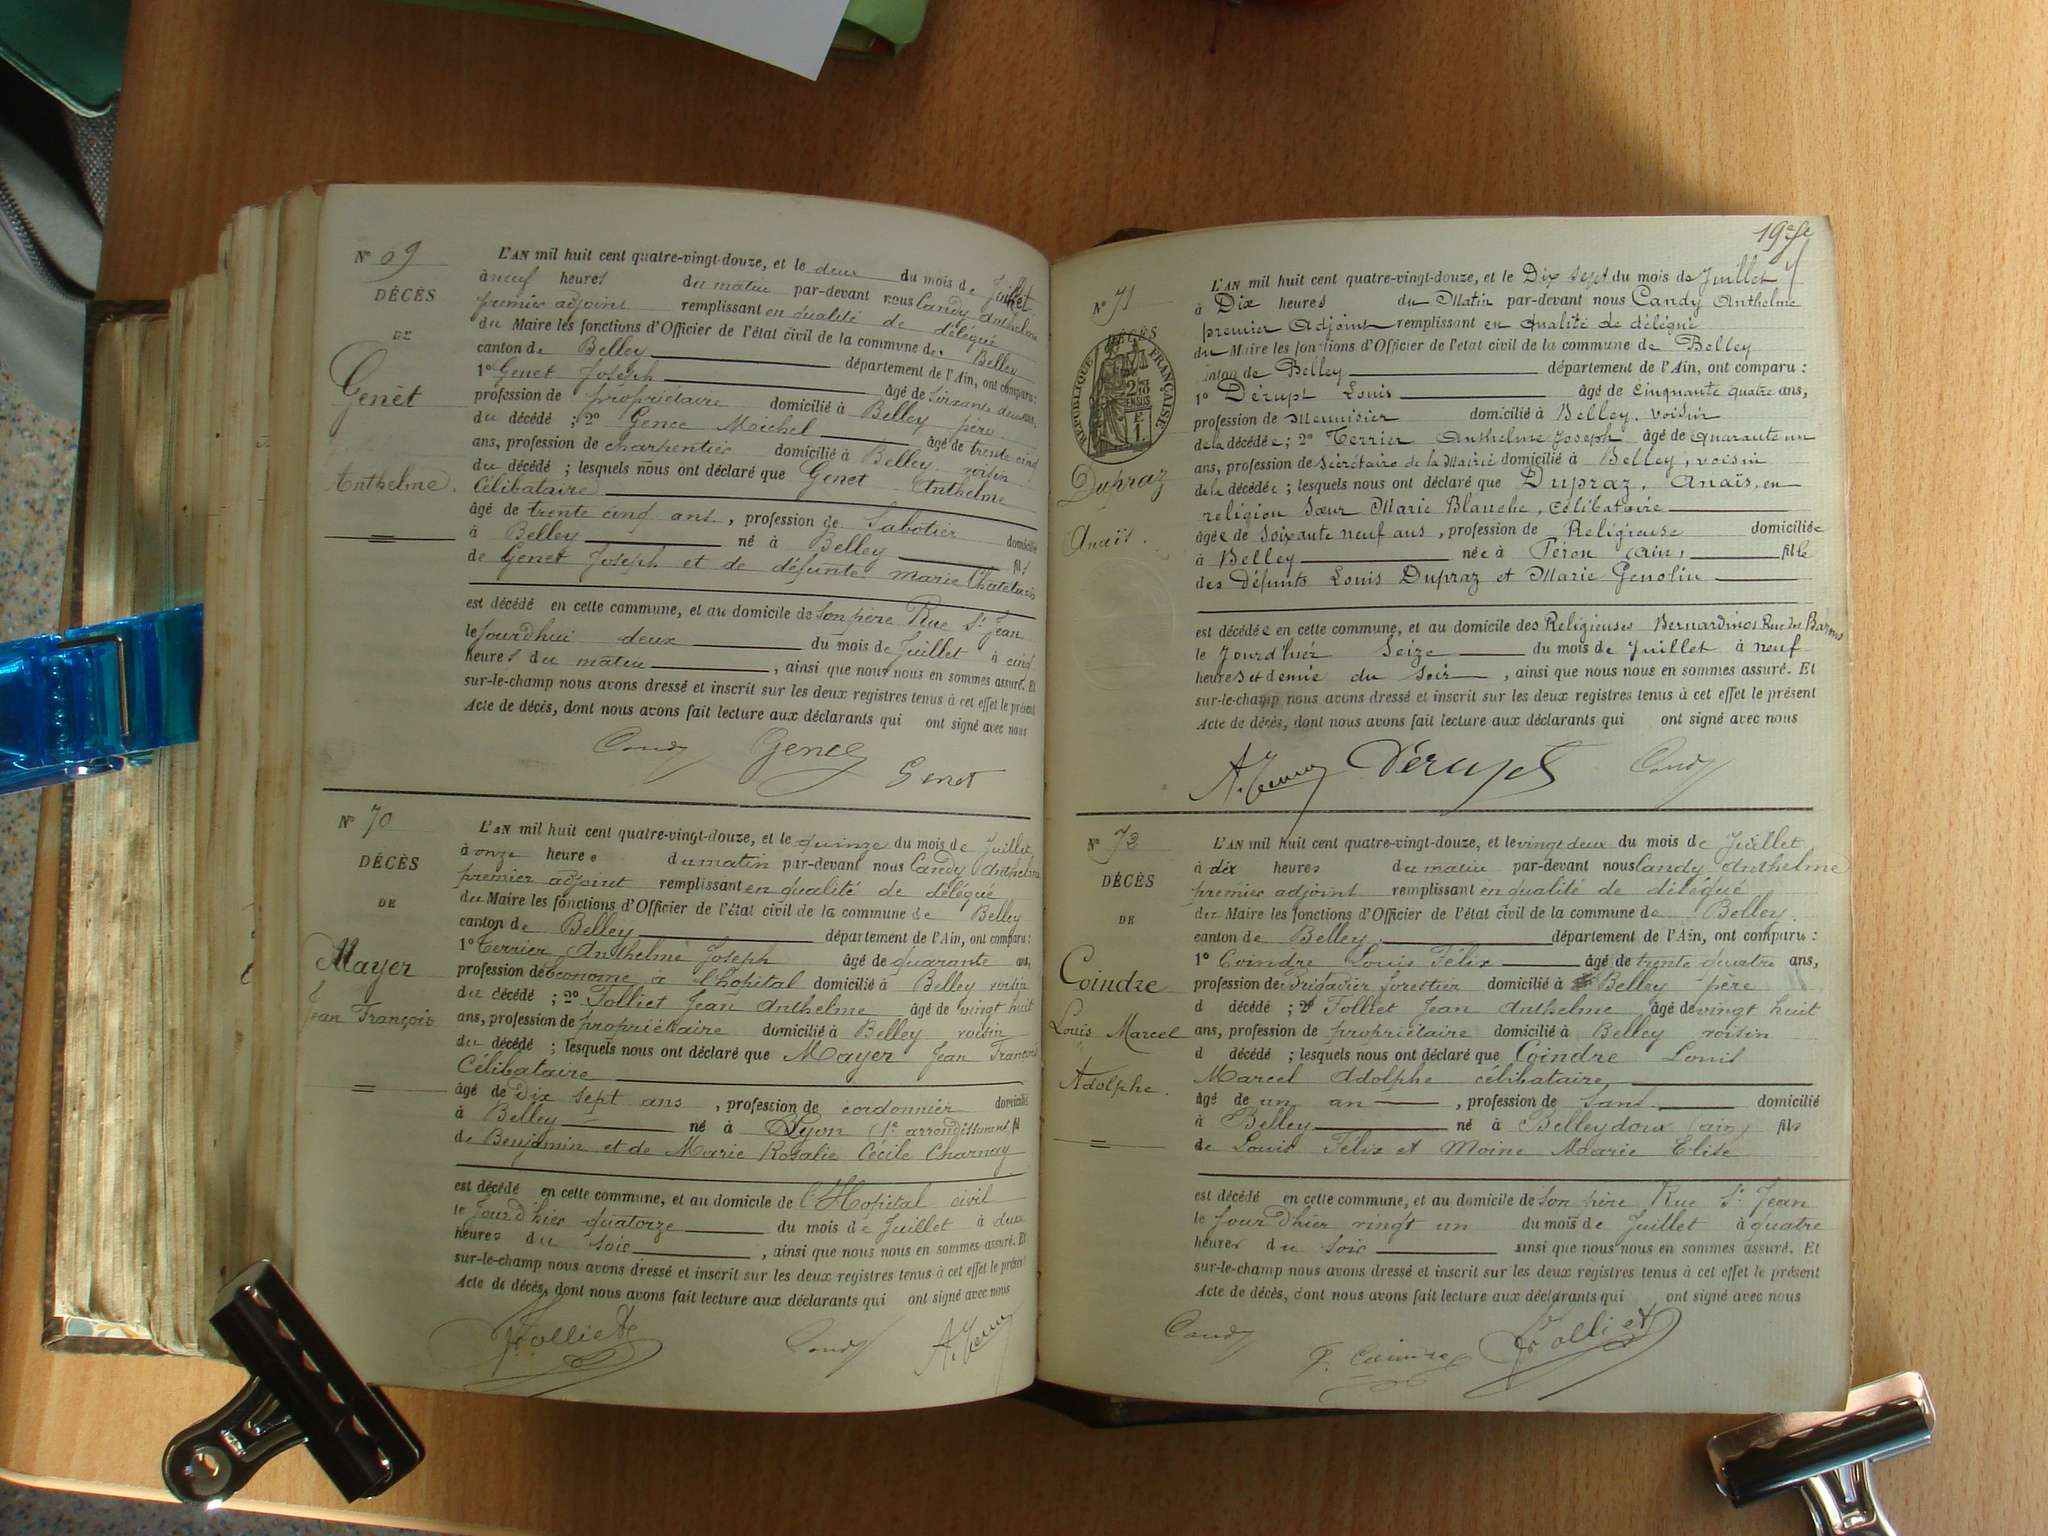 N° 69
DÉCÈS
DE
Genèt
Anthelme.
L'AN mil huit cent quatre-vingt-douze, et le deux du mois de Juillet
à neuf heures du matin par-devant nous Candy Anthelme
premier adjoint remplissant en qualité de délégué
du Maire les fonctions d'Officier de l'état civil de la commune de Belley
canton de Belley département de l'Ain, ont comparu :
1° Genet Joseph âgé de soixante deux ans,
profession de propriétaire domicilié à Belley père
du décédé ; 2° Genee Michel âgé de trente cinq
ans, profession de charpentier domicilié à Belley voisin
du décédé ; lesquels nous ont déclaré que Genet Anthelme
Célibataire
âgé de trente cinq ans, profession de Sabotier domicilié
à Belley né à Belley fils
de Genet Joseph et de défunte marie
est décédé en cette commune, et au domicile de son père Rue St Jean
le jourdhui deux du mois de Juillet à cinq
heures du matin, ainsi que nous nous en sommes assuré. Et
sur-le-champ nous avons dressé et inscrit sur les deux registres tenus à cet effet le présent
Acte de décès, dont nous avons fait lecture aux déclarants qui ont signé avec nous
Candy Genee
Genet
N° 70
DÉCÈS
DE
Mayer
Jean François
L'AN mil huit cent quatre-vingt-douze, et le quinze du mois de Juillet
à onze heures du matin par-devant nous Candy Anthelme
premier adjoint remplissant en qualité de délégué
du Maire les fonctions d'Officier de l'état civil de la commune de Belley
canton de Belley département de l'Ain, ont comparu :
1° Terrier Anthelme Joseph âgé de quarante ans,
profession de économe à l'hopital domicilié à Belley voisin
du décédé ; 2° Folliet Jean Anthelme âgé de vingt huit
ans, profession de propriétaire domicilié à Belley voisin
du décédé ; lesquels nous ont déclaré que Mayer Jean François
Célibataire
âgé de Dix sept ans, profession de cordonnier domicilié
à Belley né à Lyon (1e arrondissement) fils
de Benjamin et de Marie Rosalie Cécile Charnay
est décédé en cette commune, et au domicile de l'Hopital civil
le Jourdhier quatorze du mois de Juillet à deux
heures du soir, ainsi que nous nous en sommes assuré. Et
sur-le-champ nous avons dressé et inscrit sur les deux registres tenus à cet effet le présent
Acte de décès, dont nous avons fait lecture aux déclarants qui ont signé avec nous
Folliet Candy A. Terrier
19e
N° 71
DÉCÈS
RÉPUBLIQUE FRANÇAISE
Dupraz
Anaïs.
L'AN mil huit cent quatre-vingt-douze, et le Dix sept du mois de Juillet
à Dix heures du Matin par-devant nous Candy Anthelme
premier Adjoint remplissant en qualité de délégué
du Maire les fonctions d'Officier de l'état civil de la commune de Belley
canton de Belley département de l'Ain, ont comparu :
1° Dérupt Louis âgé de Cinquante quatre ans,
profession de Menuisier domicilié à Belley, voisin
de la décédée ; 2° Terrier Anthelme Joseph âgé de Quarante un
ans, profession de Secrétaire de la Mairie domicilié à Belley, voisin
de la décédée ; lesquels nous ont déclaré que Dupraz, Anaïs, en
religion Sœur Marie Blanche, Célibataire
âgée de Soixante neuf ans, profession de Religieuse domiciliée
à Belley née à Péron (Ain) fille
des Défunts Louis Dupraz et Marie Genolin
est décédée en cette commune, et au domicile des Religieuses Bernardines Rue des Barons
le Jourd'hier Seize du mois de Juillet à neuf
heures et demie du Soir, ainsi que nous nous en sommes assuré. Et
sur-le-champ nous avons dressé et inscrit sur les deux registres tenus à cet effet le présent
Acte de décès, dont nous avons fait lecture aux déclarants qui ont signé avec nous
A. Terrier Dérupt Candy
N° 72
DÉCÈS
DE
Coindre
Louis Marcel
Adolphe.
L'AN mil huit cent quatre-vingt-douze, et le vingt deux du mois de Juillet
à dix heures du matin par-devant nous Candy Anthelme
premier adjoint remplissant en qualité de délégué
du Maire les fonctions d'Officier de l'état civil de la commune de Belley.
canton de Belley département de l'Ain, ont comparu :
1° Coindre Louis Félix âgé de trente quatre ans,
profession de Brigadier forestier domicilié à Belley père
d décédé ; 2° Folliet Jean Anthelme âgé de vingt huit
ans, profession de propriétaire domicilié à Belley voisin
d décédé ; lesquels nous ont déclaré que Coindre Louis
Marcel Adolphe célibataire
âgé de un an, profession de sans domicilié
à Belley né à Belleydoux (ain) fils
de Louis Félix et Moine Marie Elise
est décédé en cette commune, et au domicile de son père Rue St Jean
le Jourdhier vingt un du mois de Juillet à quatre
heures du soir ainsi que nous nous en sommes assuré. Et
sur-le-champ nous avons dressé et inscrit sur les deux registres tenus à cet effet le présent
Acte de décès, dont nous avons fait lecture aux déclarants qui ont signé avec nous
Candy F. Coindre Folliet